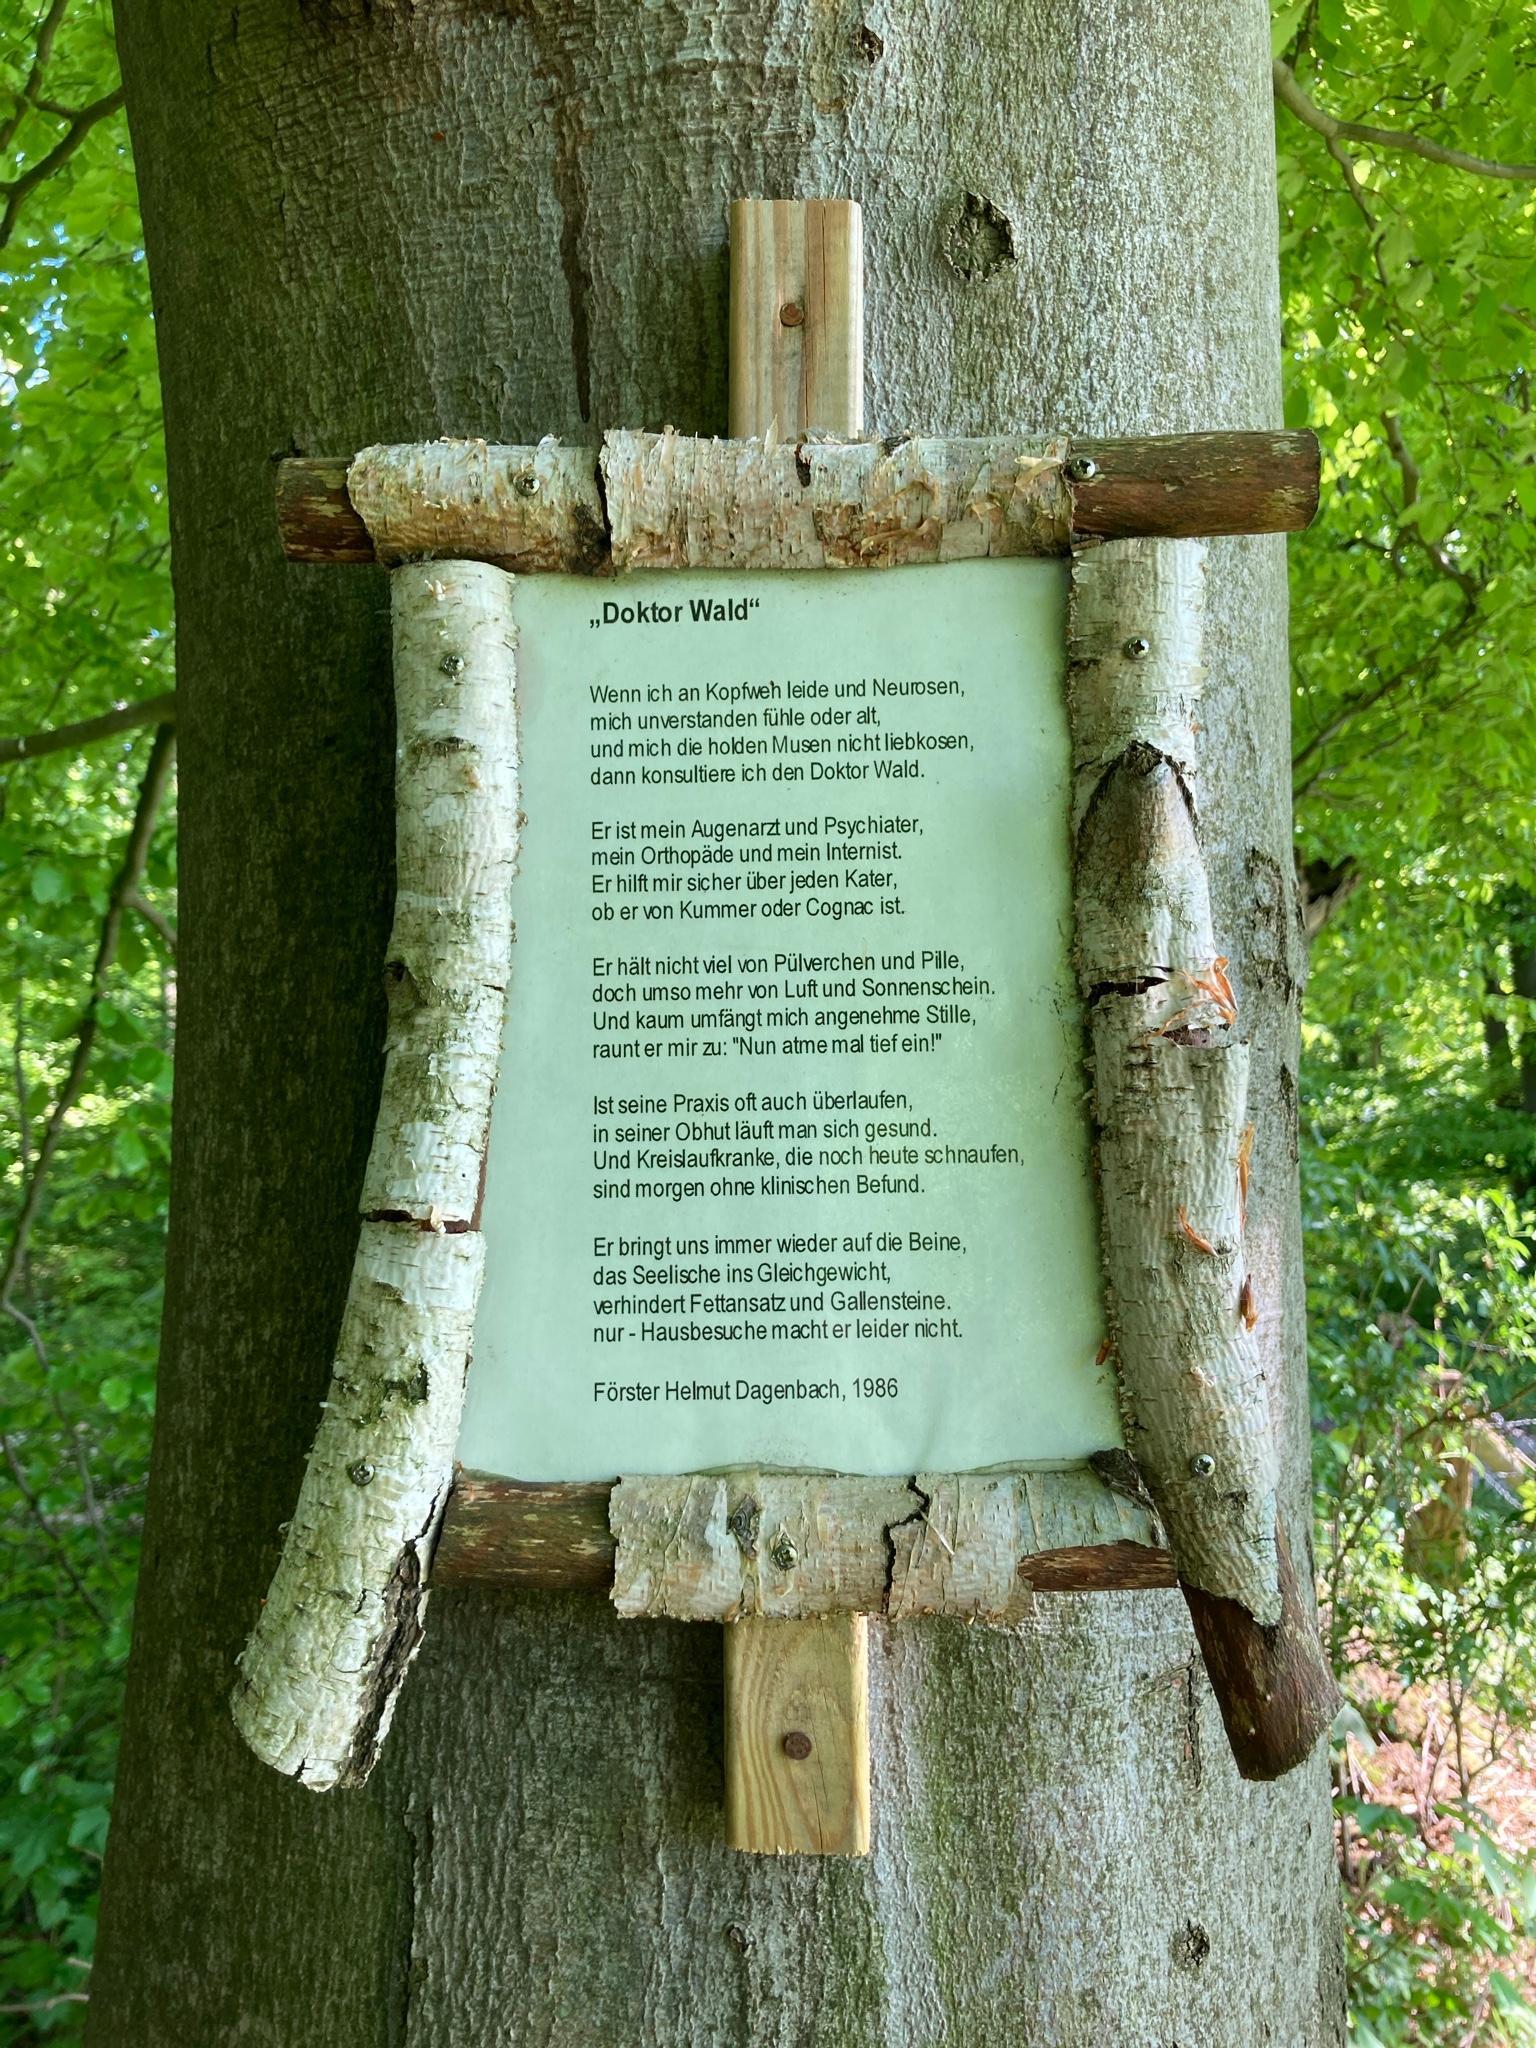 „Doktor Wald“
Wenn ich an Kopfweh leide und Neurosen,
mich unverstanden fühle oder alt,
und mich die holden Musen nicht liebkosen,
dann konsultiere ich den Doktor Wald.
Er ist mein Augenarzt und Psychiater,
mein Orthopäde und mein Internist.
Er hilft mir sicher über jeden Kater,
ob er von Kummer oder Cognac ist.
Er hält nicht viel von Pülverchen und Pille,
doch umso mehr von Luft und Sonnenschein.
Und kaum umfängt mich angenehme Stille,
raunt er mir zu: "Nun atme mal tief ein!"
Ist seine Praxis oft auch überlaufen,
in seiner Obhut läuft man sich gesund.
Und Kreislaufkranke, die noch heute schnaufen,
sind morgen ohne klinischen Befund.
Er bringt uns immer wieder auf die Beine,
das Seelische ins Gleichgewicht,
verhindert Fettansatz und Gallensteine.
nur - Hausbesuche macht er leider nicht.
Förster Helmut Dagenbach, 1986